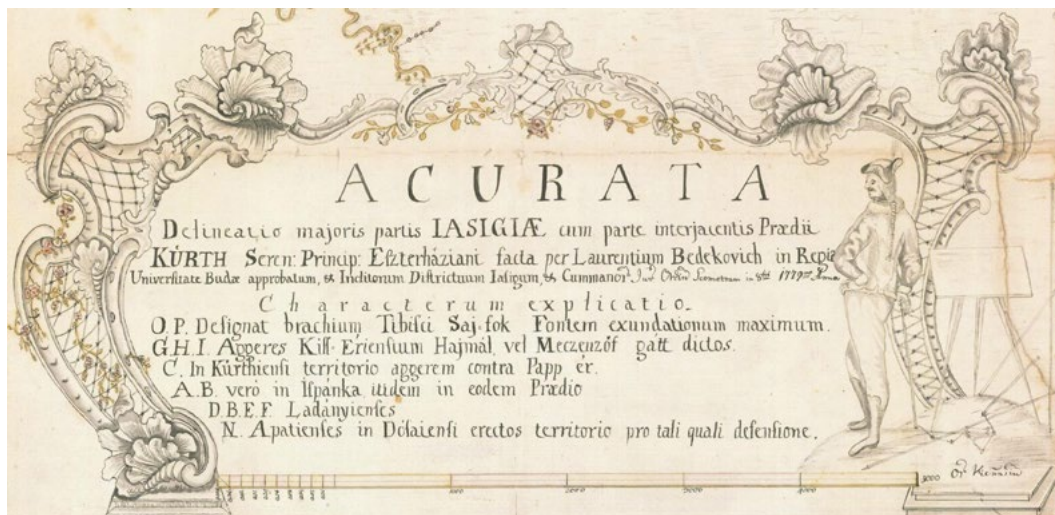 ACURATA
Delineatio majoris partis IASIGIÆ cum parte interjacentis Prædii
KÚRTH Seren: Princip: Eszterháziani facta per Laurentium Bedekovich in Regia
Universitate Budæ approbatum, & Inclitorum Districtuum Iasigum, & Cummanor.
Characterum explicatio.
O.P. Designat brachium Tibisci Saj-fok Fontem exundationum maximum.
G.H.I. Aggeres Kiss-Eriensium Hajmál, vel Meczenzöf gátt dictos.
C. In Kürthiensi territorio aggerem contra Papp ér.
A.B vero in Ispánka itidem in eodem Prædio
D.B.E.F. Ladányienses
N. Apatienses in Dósaiensi erectos territorio pro tali quali defensione.
1000 2000 3000 4000 5000